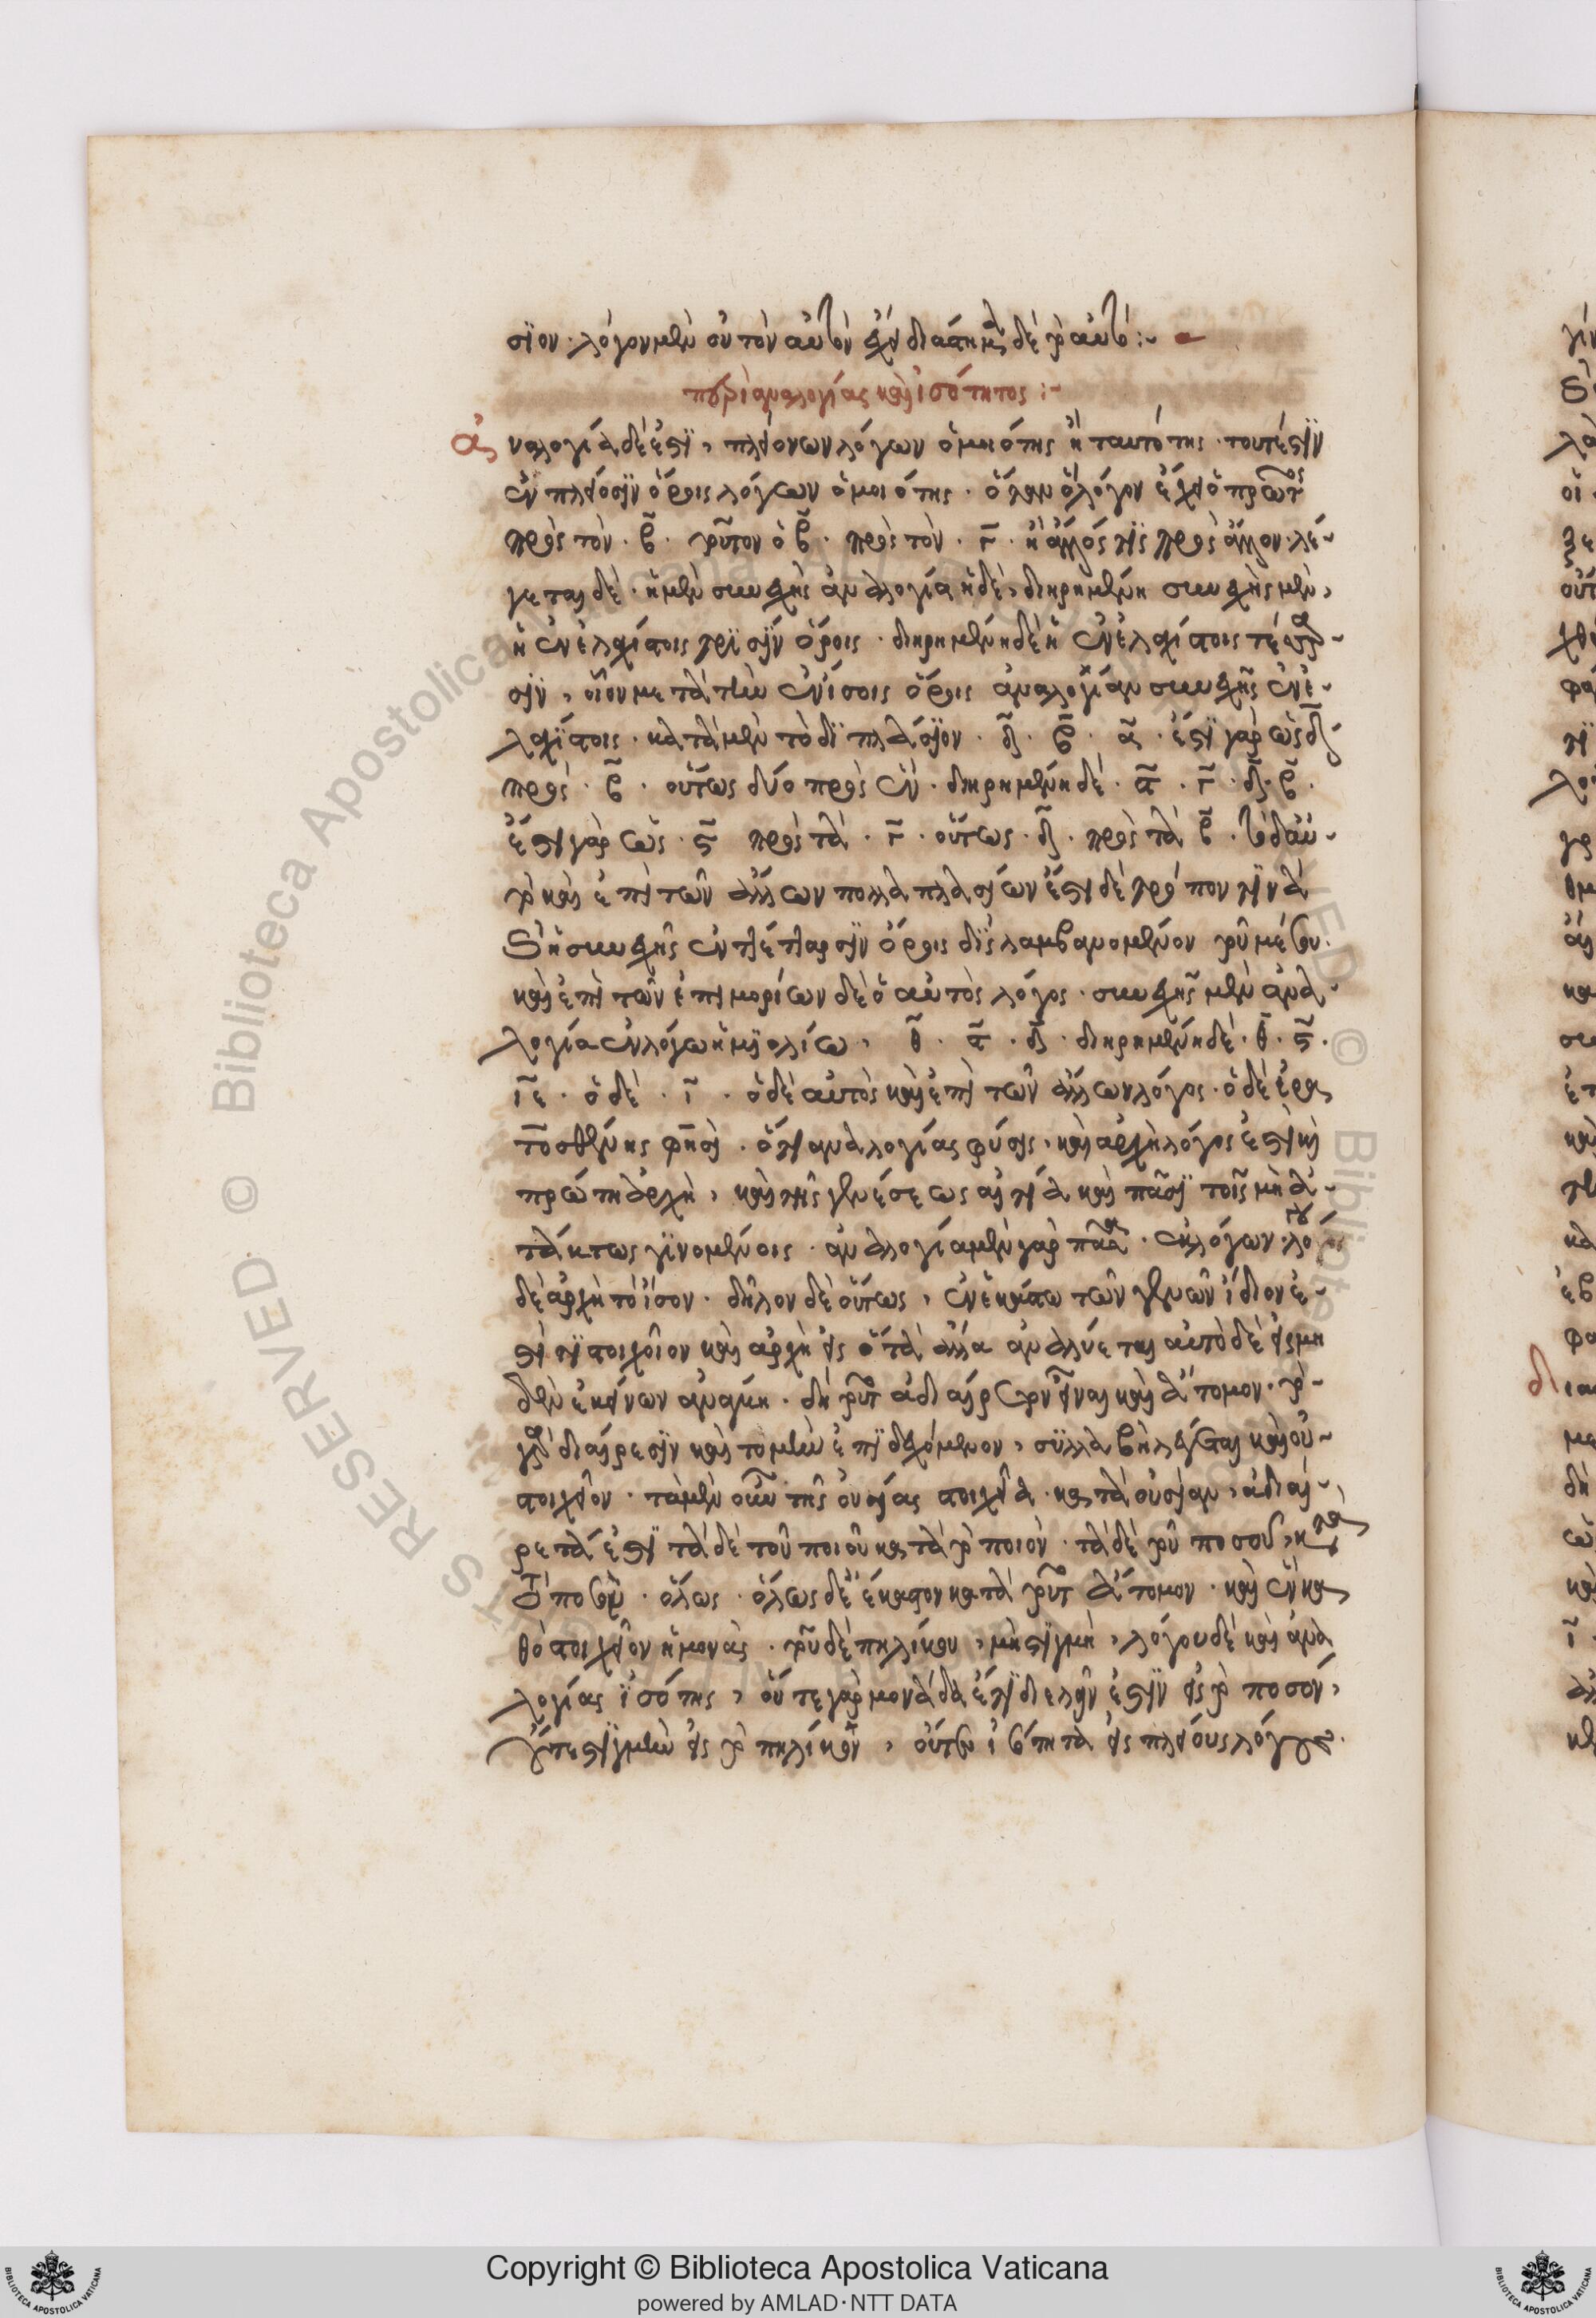 σϊον · λόγον μὲν οὖν τὸν αὐτὸν ἔχει διάστημα δὲ τὸ αὐτό :-
περὶ ἀναλογίας καὶ ἰσότητος :-
ἀναλογία δέ ἐστϊ, πλειόνων λόγων ὁμοιότης ἢ ταυτότης · τουτέστϊν
ἐν πλείοσϊν ὅροις λόγων ὁμοιότης · ὅταν ὃν λόγον ἔχει ὁ πρῶτος
πρὸς τὸν · β · τοῦτον ὁ β · πρὸς τὸν · γ · ἢ ἄλλός τϊς πρὸς ἄλλον · λέ-
γεται δὲ · ἡ μὲν συνεχὴς ἀναλογία ἡ δὲ, διῃρημένη συνεχὴς μὲν,
ἡ ἐν ἐλαχίστοις τρϊσϊν ὅροις · διῃρημένη δὲ ἡ ἐν ἐλαχίστοις τέσαρ-
σϊν, οἷον μετὰ τὴν ἐν ἴσοις ὅροις ἀναλογίαν συνεχῆς ἐν ἐ-
λαχίστοις · κατὰ μὲν τὸ δϊπλάσϊον · δ · β · α · ἔστϊ γὰρ ὡς δ
πρὸς · β · οὕτως δύο πρὸς ἓν · διῃρημένη δὲ · ϛ · γ · δ · β ·
ἔστι γὰρ ὡς · ϛ πρὸς τὰ · γ · οὕτως · δ · πρὸς τὰ β · τὸ δ αὐ-
τὸ καὶ ἐπὶ τῶν ἄλλων πολλαπλασίων ἔστι δὲ τρόπον τϊνὰ
ἡ συνεχῆς ἐν τέταρσϊν ὅροις δϊς λαμβανομένου τοῦ μέσου ·
καὶ ἐπὶ τῶν ἐπιμορίων δὲ ὁ αὐτὸς λόγος · συνεχῆς μὲν ἀνα
λογία ἐν λόγω ἡμϊολίω, θ · ϛ · δ · διῃρημένη δὲ · θ · ϛ ·
ιε · ὁ δὲ · ι · ὁ δὲ αὐτὸς καὶ ἐπὶ τῶν ἄλλων λόγος · ὁ δὲ ἐρα
τοσθένης φησὶ · ὅτι ἀναλογίας φύσις, καὶ ἀρχὴ λόγος ἐστὶ καὶ
πρώτη ἀρχὴ, καὶ τῆς γενέσεως αἰτία καὶ πᾶσϊ τοῖς μὴ ἀ-
τάκτως γϊνομένοις · ἀναλογία μὲν γὰρ πᾶσα · ἐκ λόγων · λόγου
δὲ ἀρχὴ τὸ ἴσον · δῆλον δὲ οὕτως, ἐν ἑκάστω τῶν γενῶν ἴδιον ἐ-
στί τϊ στοιχεῖον καὶ ἀρχὴ εἰς ὃ τὰ ἄλλα ἀναλύεται αὐτὸ δὲ εἰς μη
δὲν ἐκείνων ἀνάγκη · δὴ τοῦτο ἀδιαίρετον εἶναι καὶ ἄτομον · τὸ
γὰρ διαίρεσϊν καὶ τομὴν ἐπϊδεχόμενον, συλλαβὴ λέγεται καὶ οὐ
στοιχεῖον · τὰ μὲν οὖν τῆς οὐσίας στοιχεῖα · κατὰ οὐσίαν, ἀδιαί-
ρετά ἐστϊ τὰ δὲ τοῦ ποιοῦ κατὰ τὸ ποιὸν · τὰ δὲ τοῦ ποσοῦ, κατὰ
τὸ ποσὸν · ὅλως · ὅλως δὲ ἕκαστον κατὰ τοῦτο ἄτομον · καὶ ἓν κα
θὸ στοιχεῖον ἡ μονὰς · τοῦ δὲ πηλίκου, μὴ στϊγμὴ, λόγου δὲ καὶ ἀνα
λογίας ϊσότης, οὔτε γὰρ μονάδα ἔτϊ διελεῖν ἐστϊν εἰς τὸ ποσόν,
οὔτε στϊγμὴν εἰς τὸ πηλίκον, οὔτε ἰσότητα εἰς πλείους λόγους ·
Copyright © Biblioteca Apostolica Vaticana
powered by AMLAD·NTT DATA